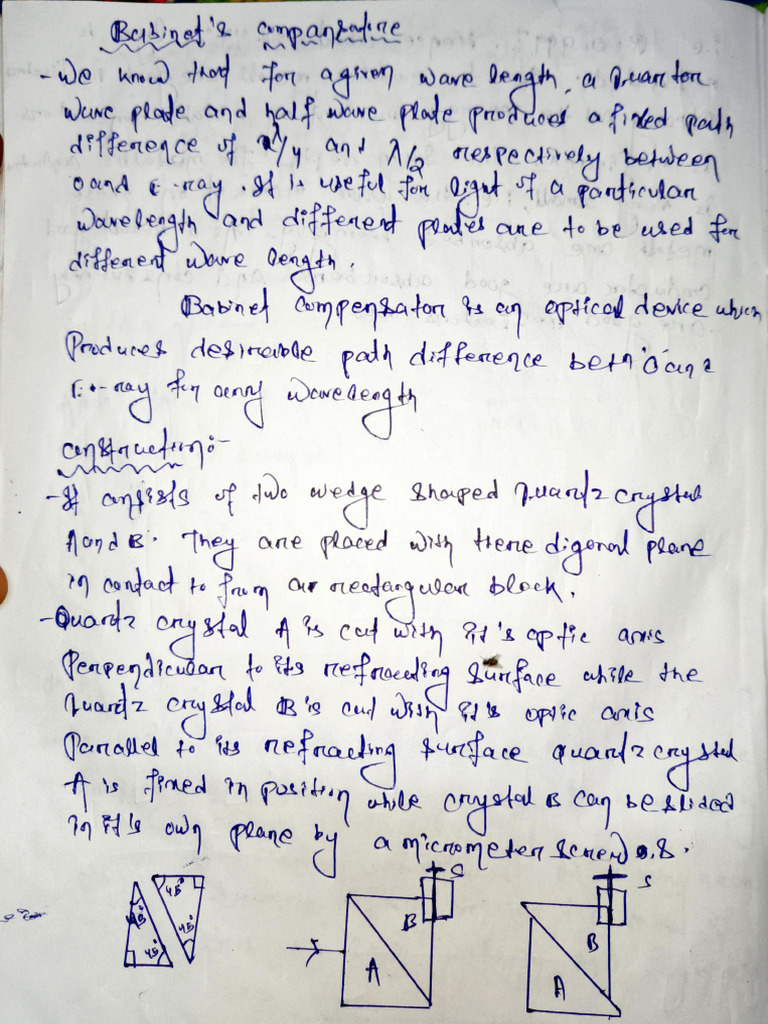 Babinet's compansatire
- We know that for a given wave length, a Quarter
wave plate and half wave plate produces a fixed path
difference of λ/4 and λ/2 respectively between
O and E-ray. It is useful for light of a particular
wavelength and different plates are to be used for
different wave length.
Babinet compensator is an optical device which
Produces desireable path difference betn 'O' and
E-ray for any wavelength
construction:-
- It consists of two wedge shaped quartz crystal
A and B. They are placed with there digonal plane
in contact to from a rectangular block.
- Quartz crystal A is cut with it's optic axis
Perpendicular to its refracting surface while the
quartz crystal B is cut with it's optic axis
Parallel to its refracting surface quartz crystal
A is fixed in position while crystal B can be slided
in it's own plane by a micrometer screw S.
45° 45° 45° 45°
A B S
A B S